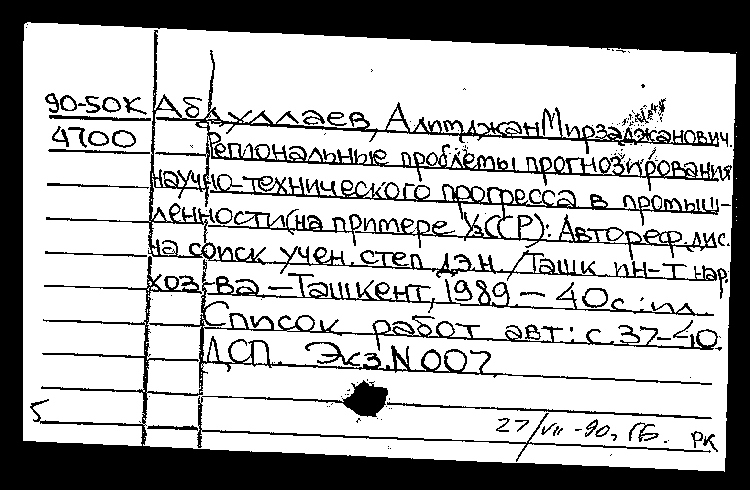 90-50К Абдуллаев, Алимджан Мирзаджанович.
4700 Региональные проблемы прогнозирования
научно-технического прогресса в промыш-
ленности (на примере УзССР): Автореф. дис.
на соиск учен. степ. д.э.н. / Ташк. ин-т нар.
хоз-ва – Ташкент, 1989 – 40с.: ил.
Список работ авт: с. 37-40.
ДСП. Экз. N 007
5 27/VII -90, ГБ. РК